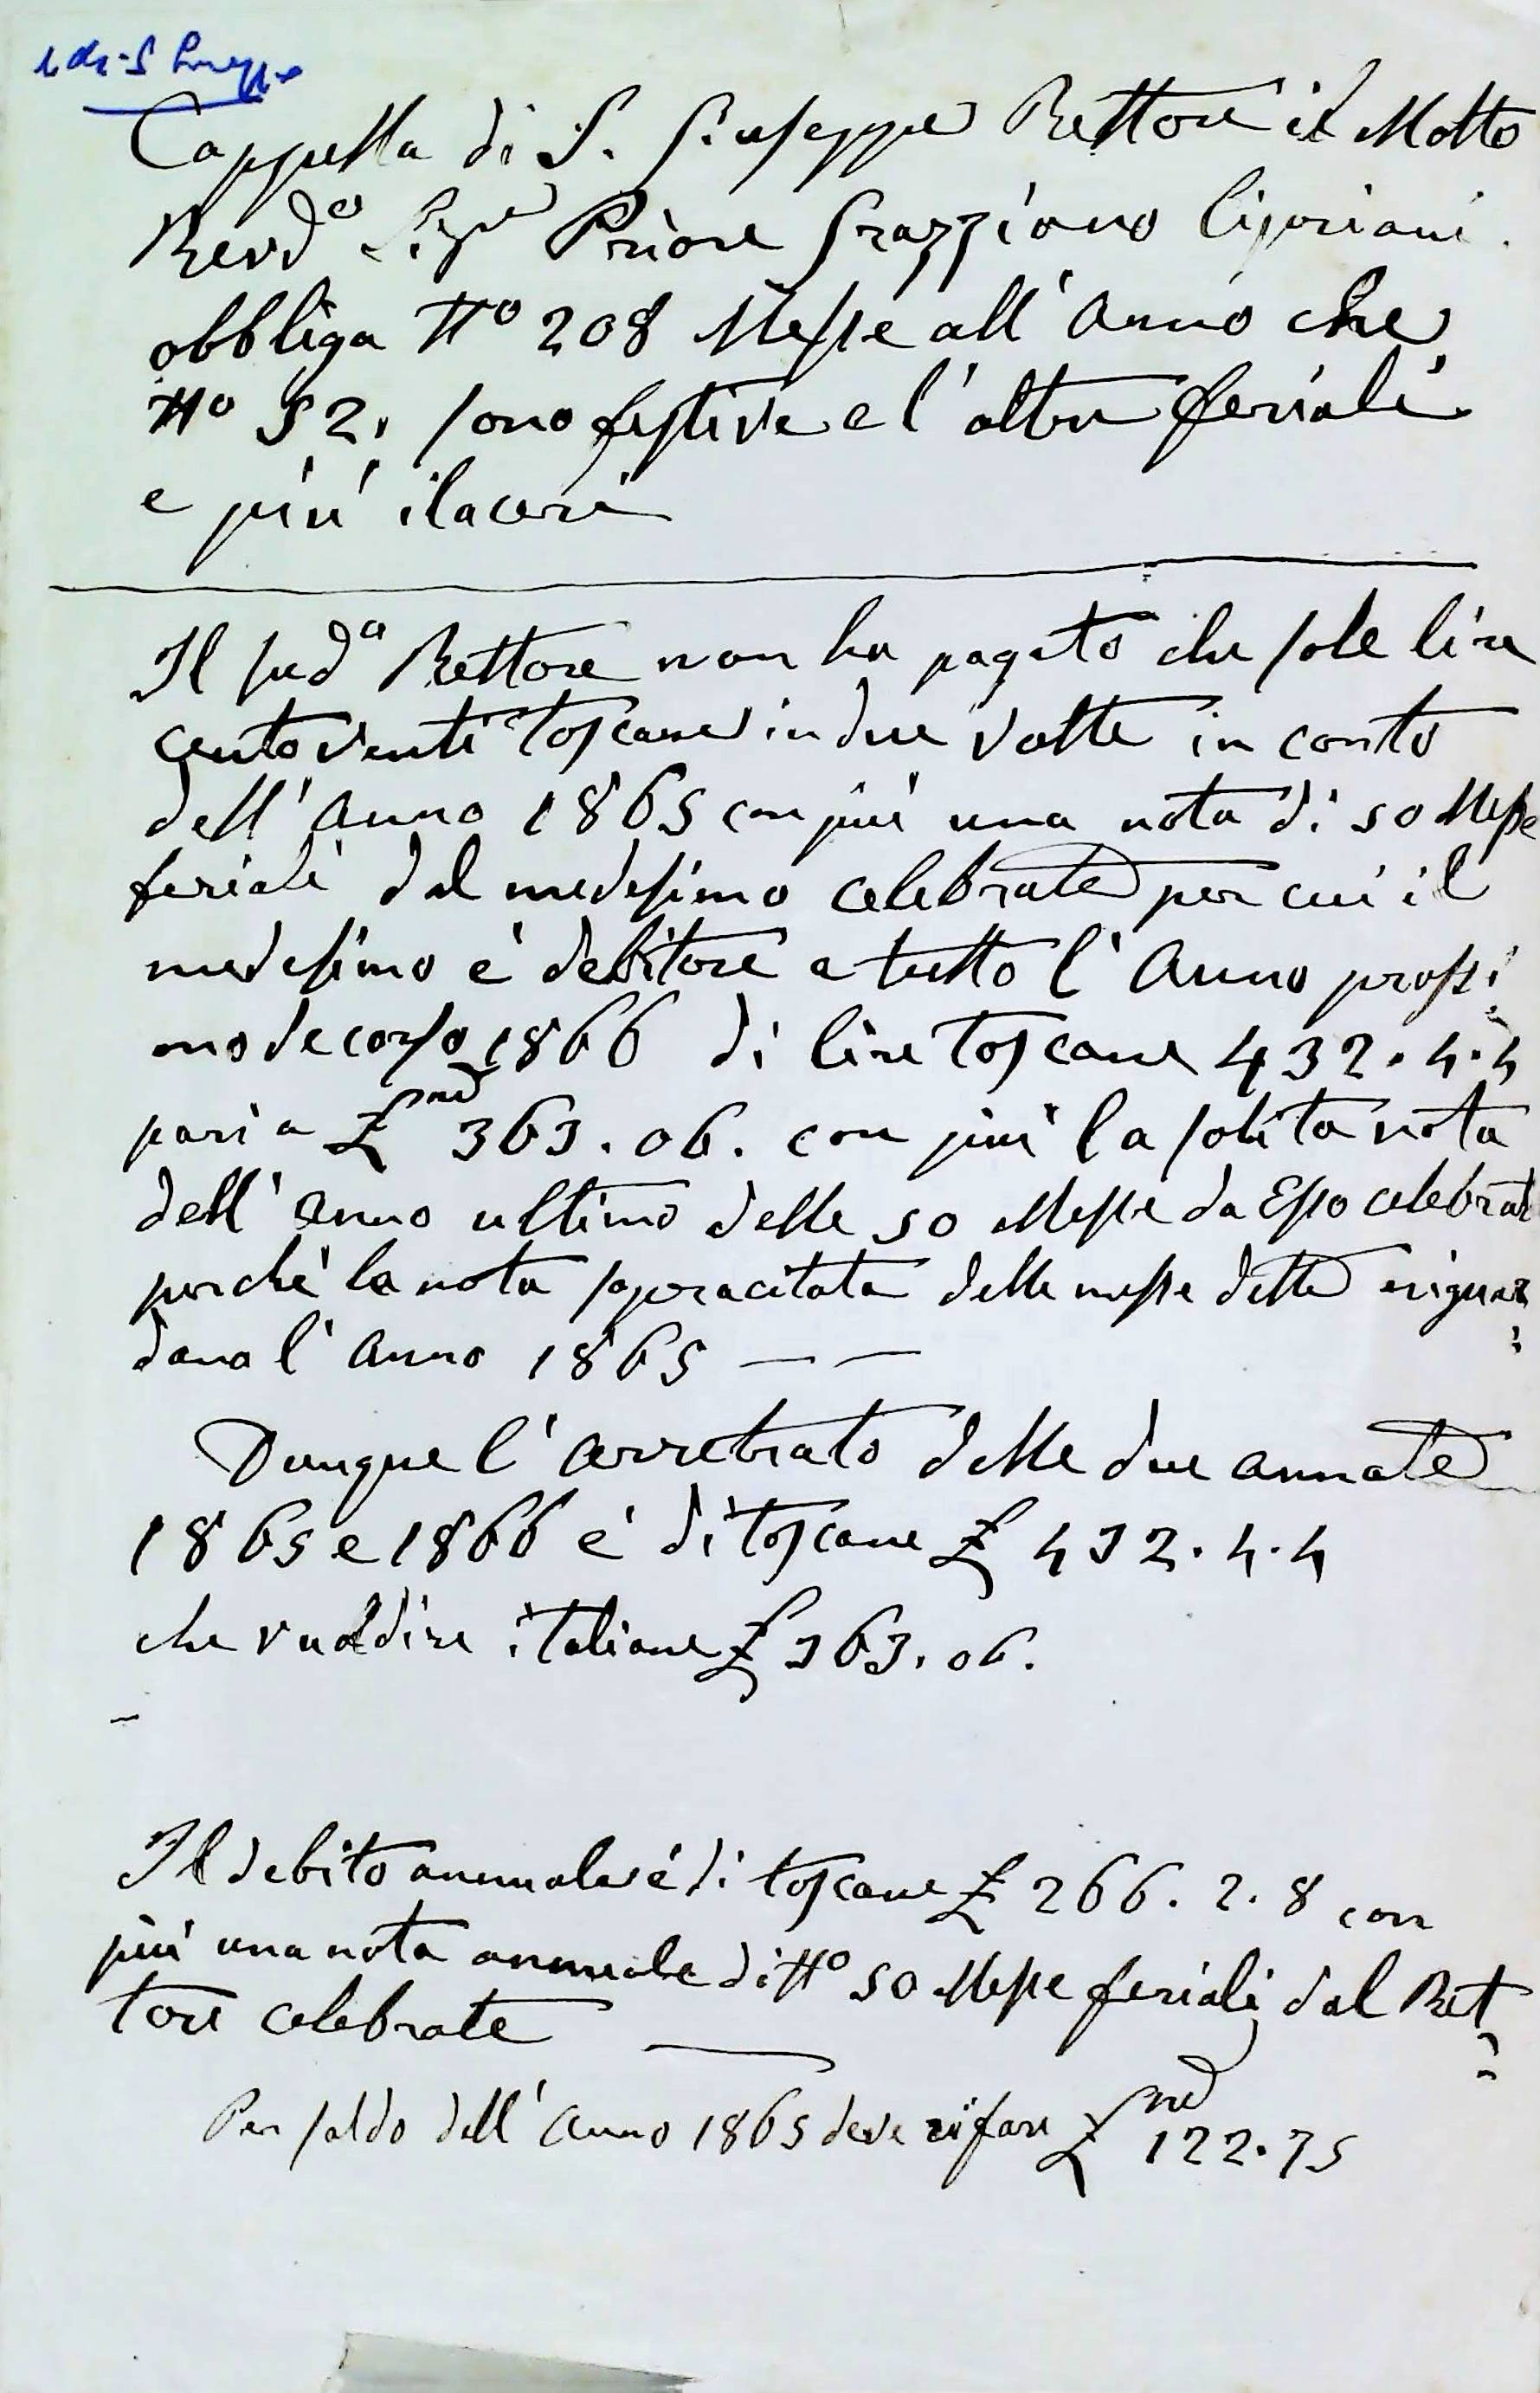 di S
Cappella di S. Giuseppe Rettore il Molto
Revd.o Sig.re Priore Grazziano Cipriani
obbliga N.o 208 Messe all' anno che
N.o 52. sono festive e l' altre feriali
e più i laceri
Il sud.o Rettore non ha pagato che sole lire
centoventi toscane in due volte in conto
dell' anno 1865 con più una nota di 50 Messe
feriali dal medesimo celebrate per cui il
medesimo è debitore a tutto l' Anno prossi
mo decorso 1866 di lire toscane 432.4.4
pari a £ 363.06. con più la solita nota
dell' anno ultimo delle 50 Messe da Esso celebrate
perchè la nota sopracitata delle messe dette riguar
dano l' anno 1865 — —
Dunque l' arretrato delle due annate
1865 e 1866 è di toscane £ 432.4.4
che vuol dire italiane £ 363.06.
Il debito annuale è di toscane £ 266.2.8 con
più una nota annuale di N.o 50 Messe feriali dal Ret
tore celebrate
Per saldo dell' anno 1865 deve rifare £ 122.75